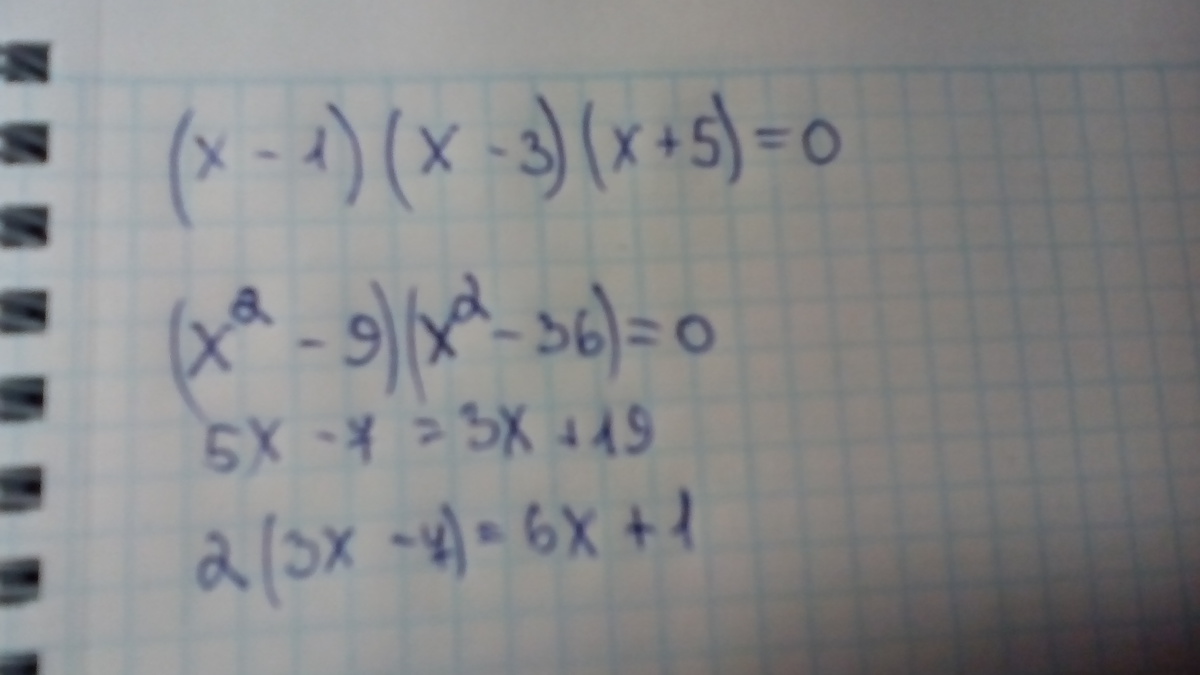 (x - 1)(x - 3)(x + 5) = 0
(x² - 9)(x² - 36) = 0
5x - 7 = 3x + 19
2(3x - 7) = 6x + 1